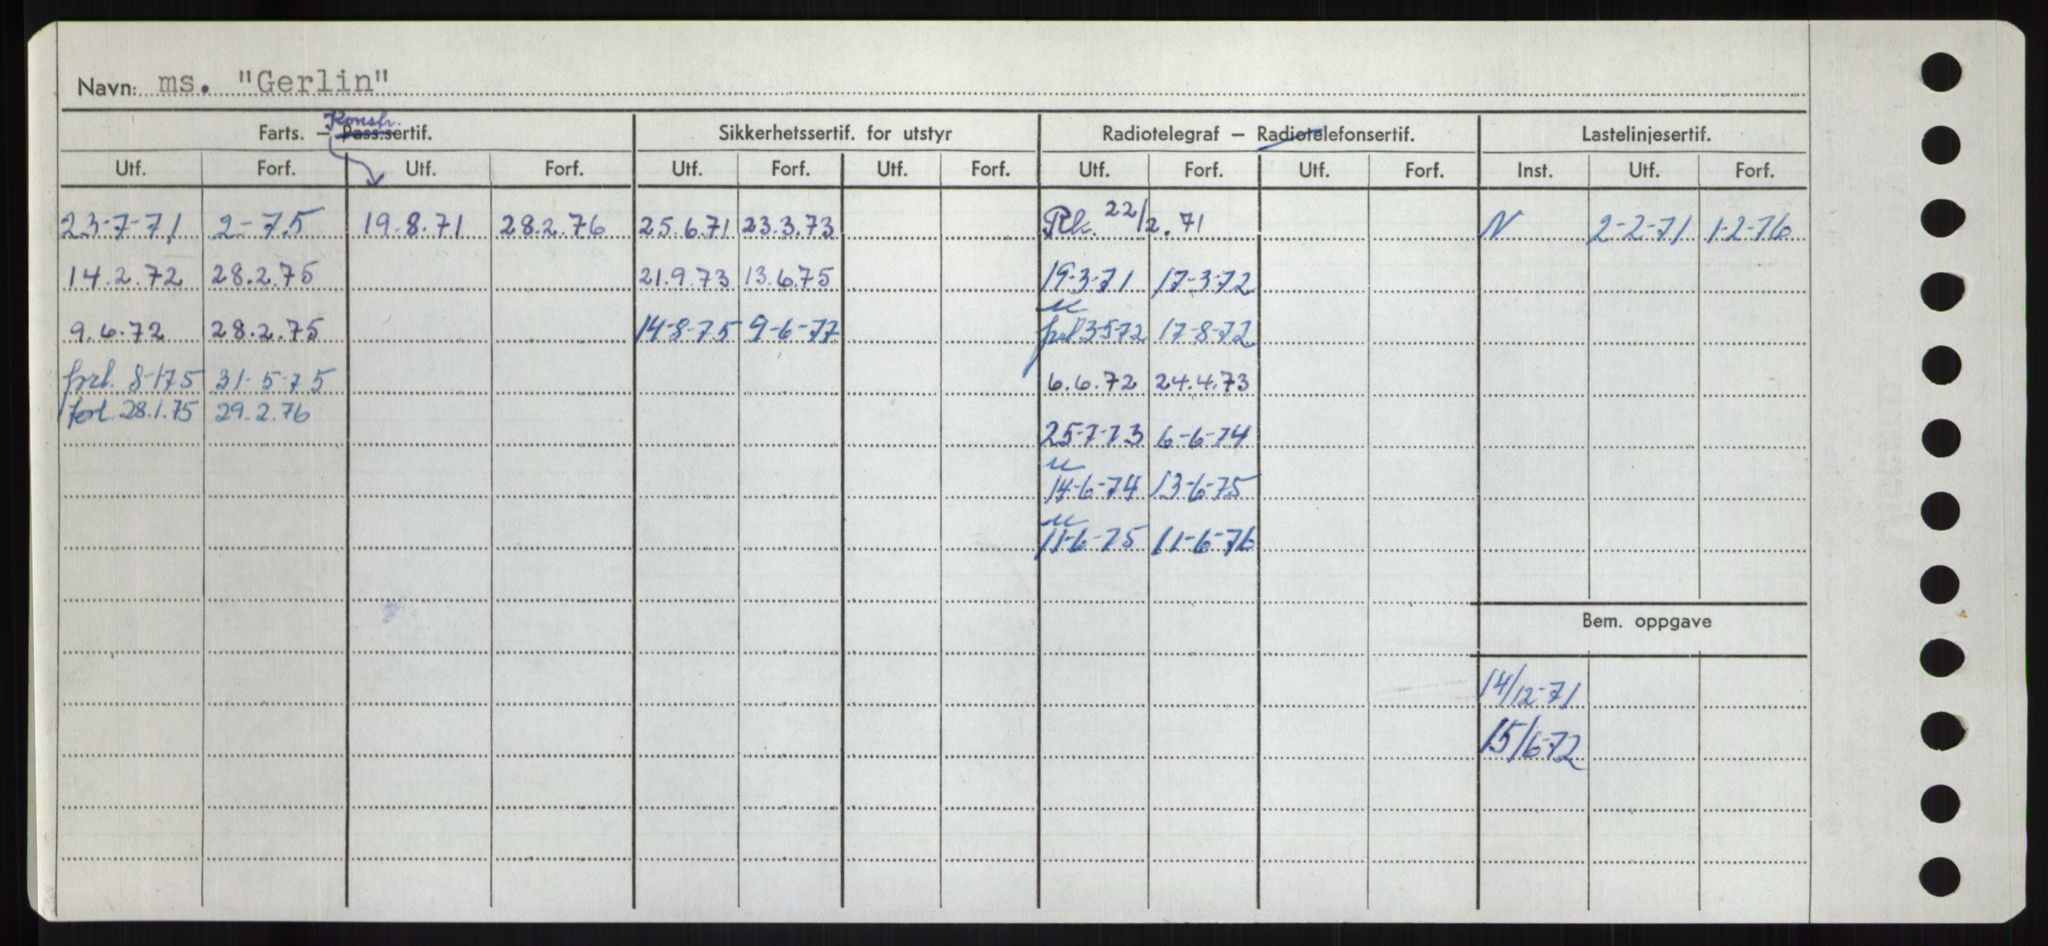 Navn: ms. "Gerlin"
Konstr.
Farts. – Pass.sertif. Sikkerhetssertif. for utstyr Radiotelegraf – Radiotelefonsertif. Lastelinjesertif.
Utf. Forf. Utf. Forf. Utf. Forf. Utf. Forf. Utf. Forf. Utf. Forf. Inst. Utf. Forf.
23-7-71 2-75 19.8.71 28.2.76 25.6.71 23.3.73 22/2.71 N 2-2-71 1-2-76
14.2.72 28.2.75 21.9.73 13.6.75 19-3-71 17-3-72
9.6.72 28.2.75 14-8-75 9-6-77 3-5-72 17-8-72
forl. 8-1-75 31-5-75 6.6.72 24.4.73
forl 28.1.75 29.2.76
25-7-73 6-6-74
14-6-74 13-6-75
11-6-75 11-6-76
Bem. oppgave
14/12-71
15/6-72